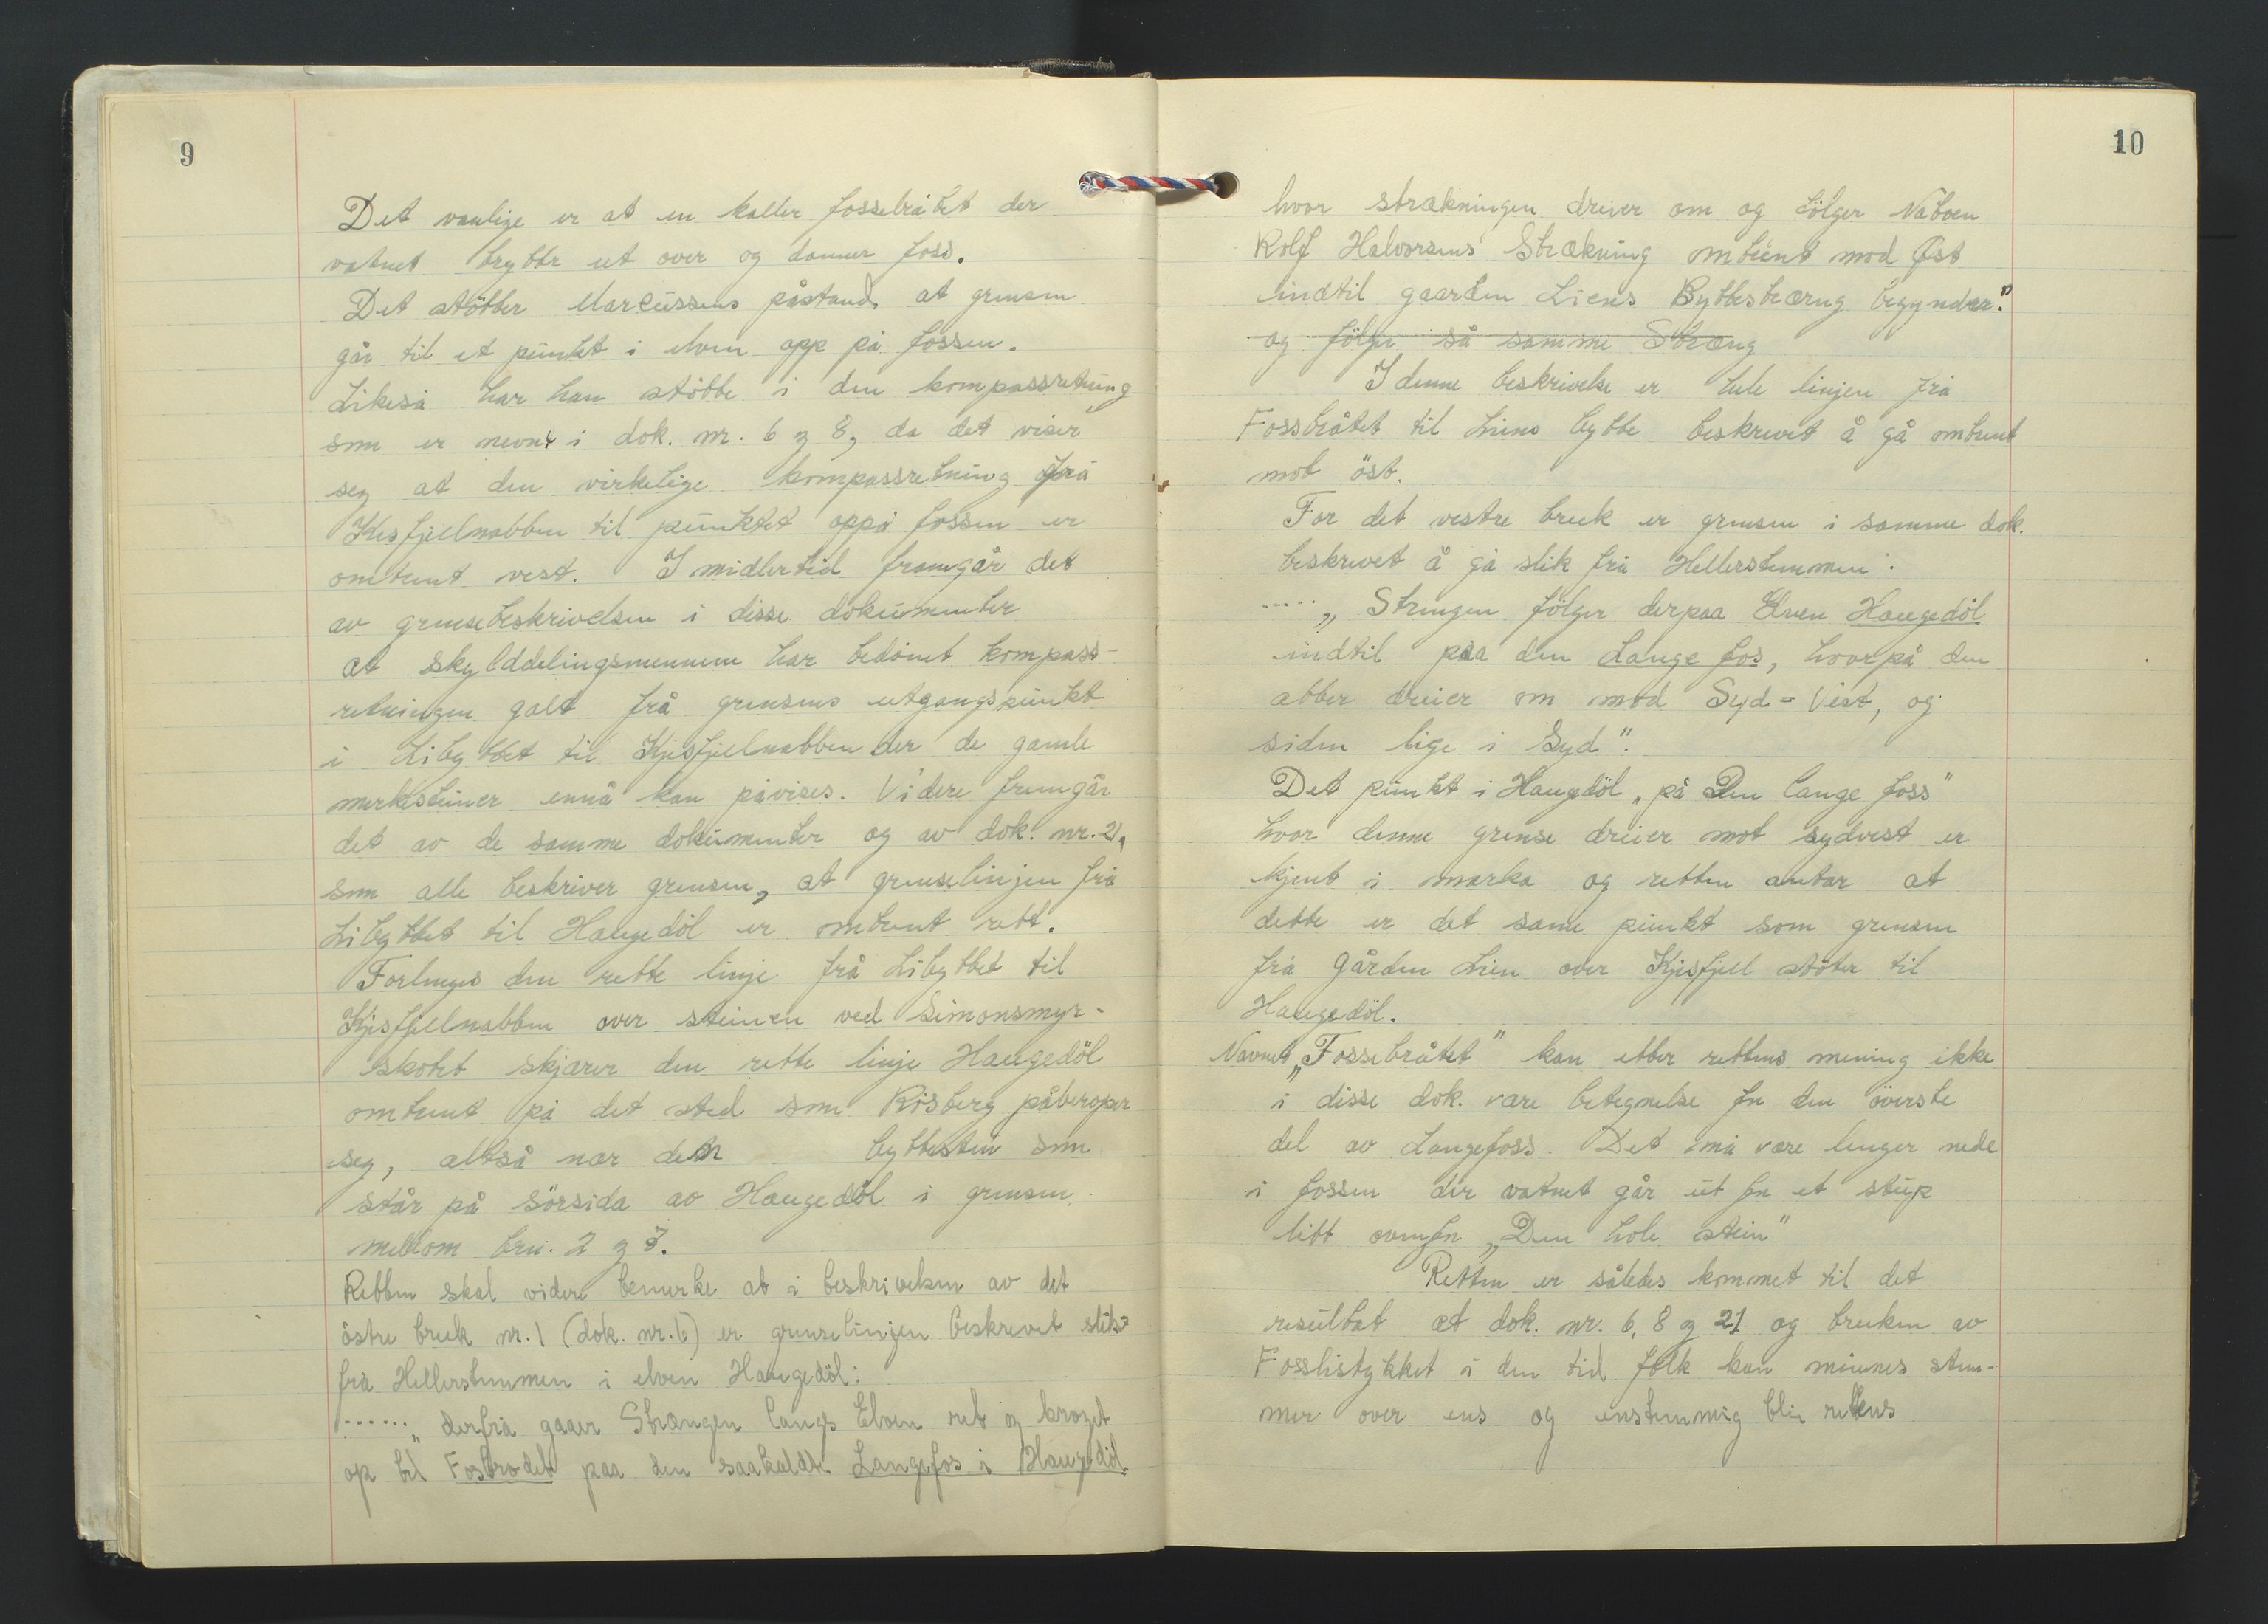 9
Det vanlige er at en kaller fossebråtet der
vatnet brytter ut over og danner foss.
Det stötter Marcussens påstand, at grensen
går til et punkt i elven opp på fossen.
Likeså har han stötte i den kompassretning
som er nevnt i dok. nr. 6 og 8, da det viser
seg at den virkelige kompassretning frå
Kisfjellnabben til punktet oppå fossen er
omtrent vest. Imidlertid framgår det
av grensebeskrivelsen i disse dokumenter
at skylddelingsmennene har bedömt kompass-
retningen galt frå grensens utgangspunkt
i Libyttet til Kjesfjellnabben der de gamle
merkesteiner ennå kan påvises. Videre fremgår
det av de samme dokumenter og av dok. nr. 21,
som alle beskriver grensen, at grenselinjen frå
Libyttet til Haugedöl er omtrent rett.
Forlenges den rette linje frå Libyttet til
Kjisfjellnabben over steinen ved Simonsmyr-
skotet skjærer den rette linje Haugedöl
omtrent på det sted som Risberg påberoper
seg, altså nær den byttestein som
står på sörsida av Haugedöl i grensen
mellom bru. 2 og 3.
Retten skal videre bemerke at i beskrivelsen av det
östre bruk nr. 1 (dok. nr. 6) er grenselinjen beskrevet slik
frå Hellerstemmen i elven Haugedöl:
...... „derfra gaaer Strængen langs Elven ret og kroget
op til Fosbrodet paa den saakaldte Langefos i Haugedöl
10
hvor strækningen dreier om og fölger Naboen
Rolf Halvorsens Strækning omtrent mod Öst
indtil gaarden Liens Byttestræng begynder."
og fölger så samme Stræng
I denne beskrivelse er hele linjen frå
Fossbråtet til Liens bytte beskrevet å gå omtrent
mot öst.
For det vestre bruk er grensen i samme dok.
beskrevet å gå slik frå Hellerstemmen:
..... „Strengen fölger derpaa Elven Haugedöl
indtil paa den Lange fos, hvorpå den
atter dreier om mod Syd = Vest, og
siden lige i Syd".
Det punkt i Haugedöl „på Den lange foss"
hvor denne grense dreier mot sydvest er
kjent i marka og retten antar at
dette er det same punkt som grensen
frå gården Lien over Kjisfjell stöter til
Haugedöl.
Navnet „Fossebråtet" kan etter rettens mening ikke
i disse dok. være betegnelse for den överste
del av Langefoss. Det må være lenger nede
i fossen der vatnet går ut for et stup
litt ovenfor „Den hole stein"
Retten er således kommet til det
resultat at dok. nr. 6, 8 og 21 og bruken av
Fosslistykket i den tid folk kan minnes stem-
mer over ens og enstemmig blir rettens